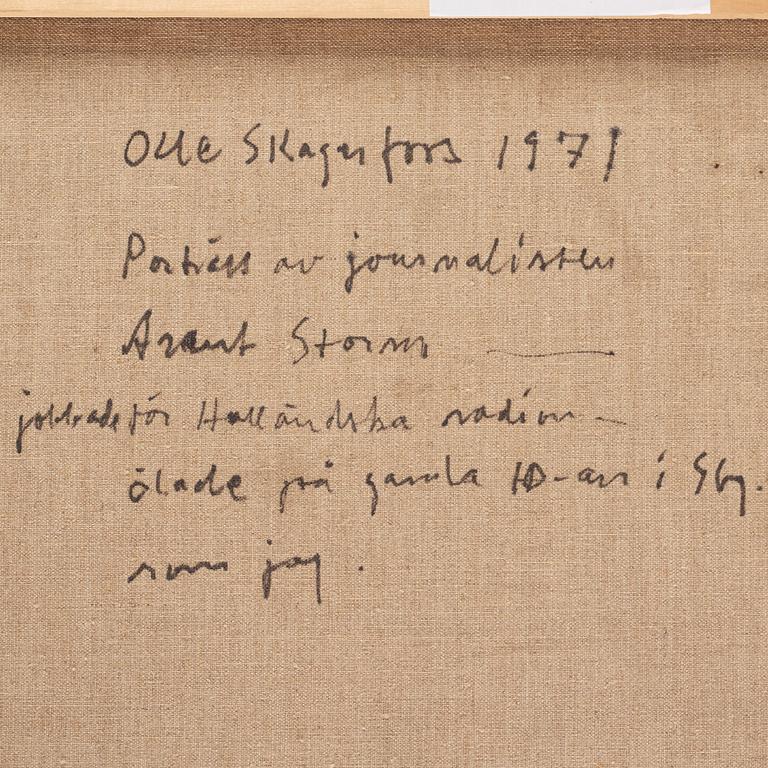 Olle Skagerfors 1971
Porträtt av journalisten
Storm
jobbade för Holländska radion -
ölade på gamla HD-an i Gbg.
som jag.